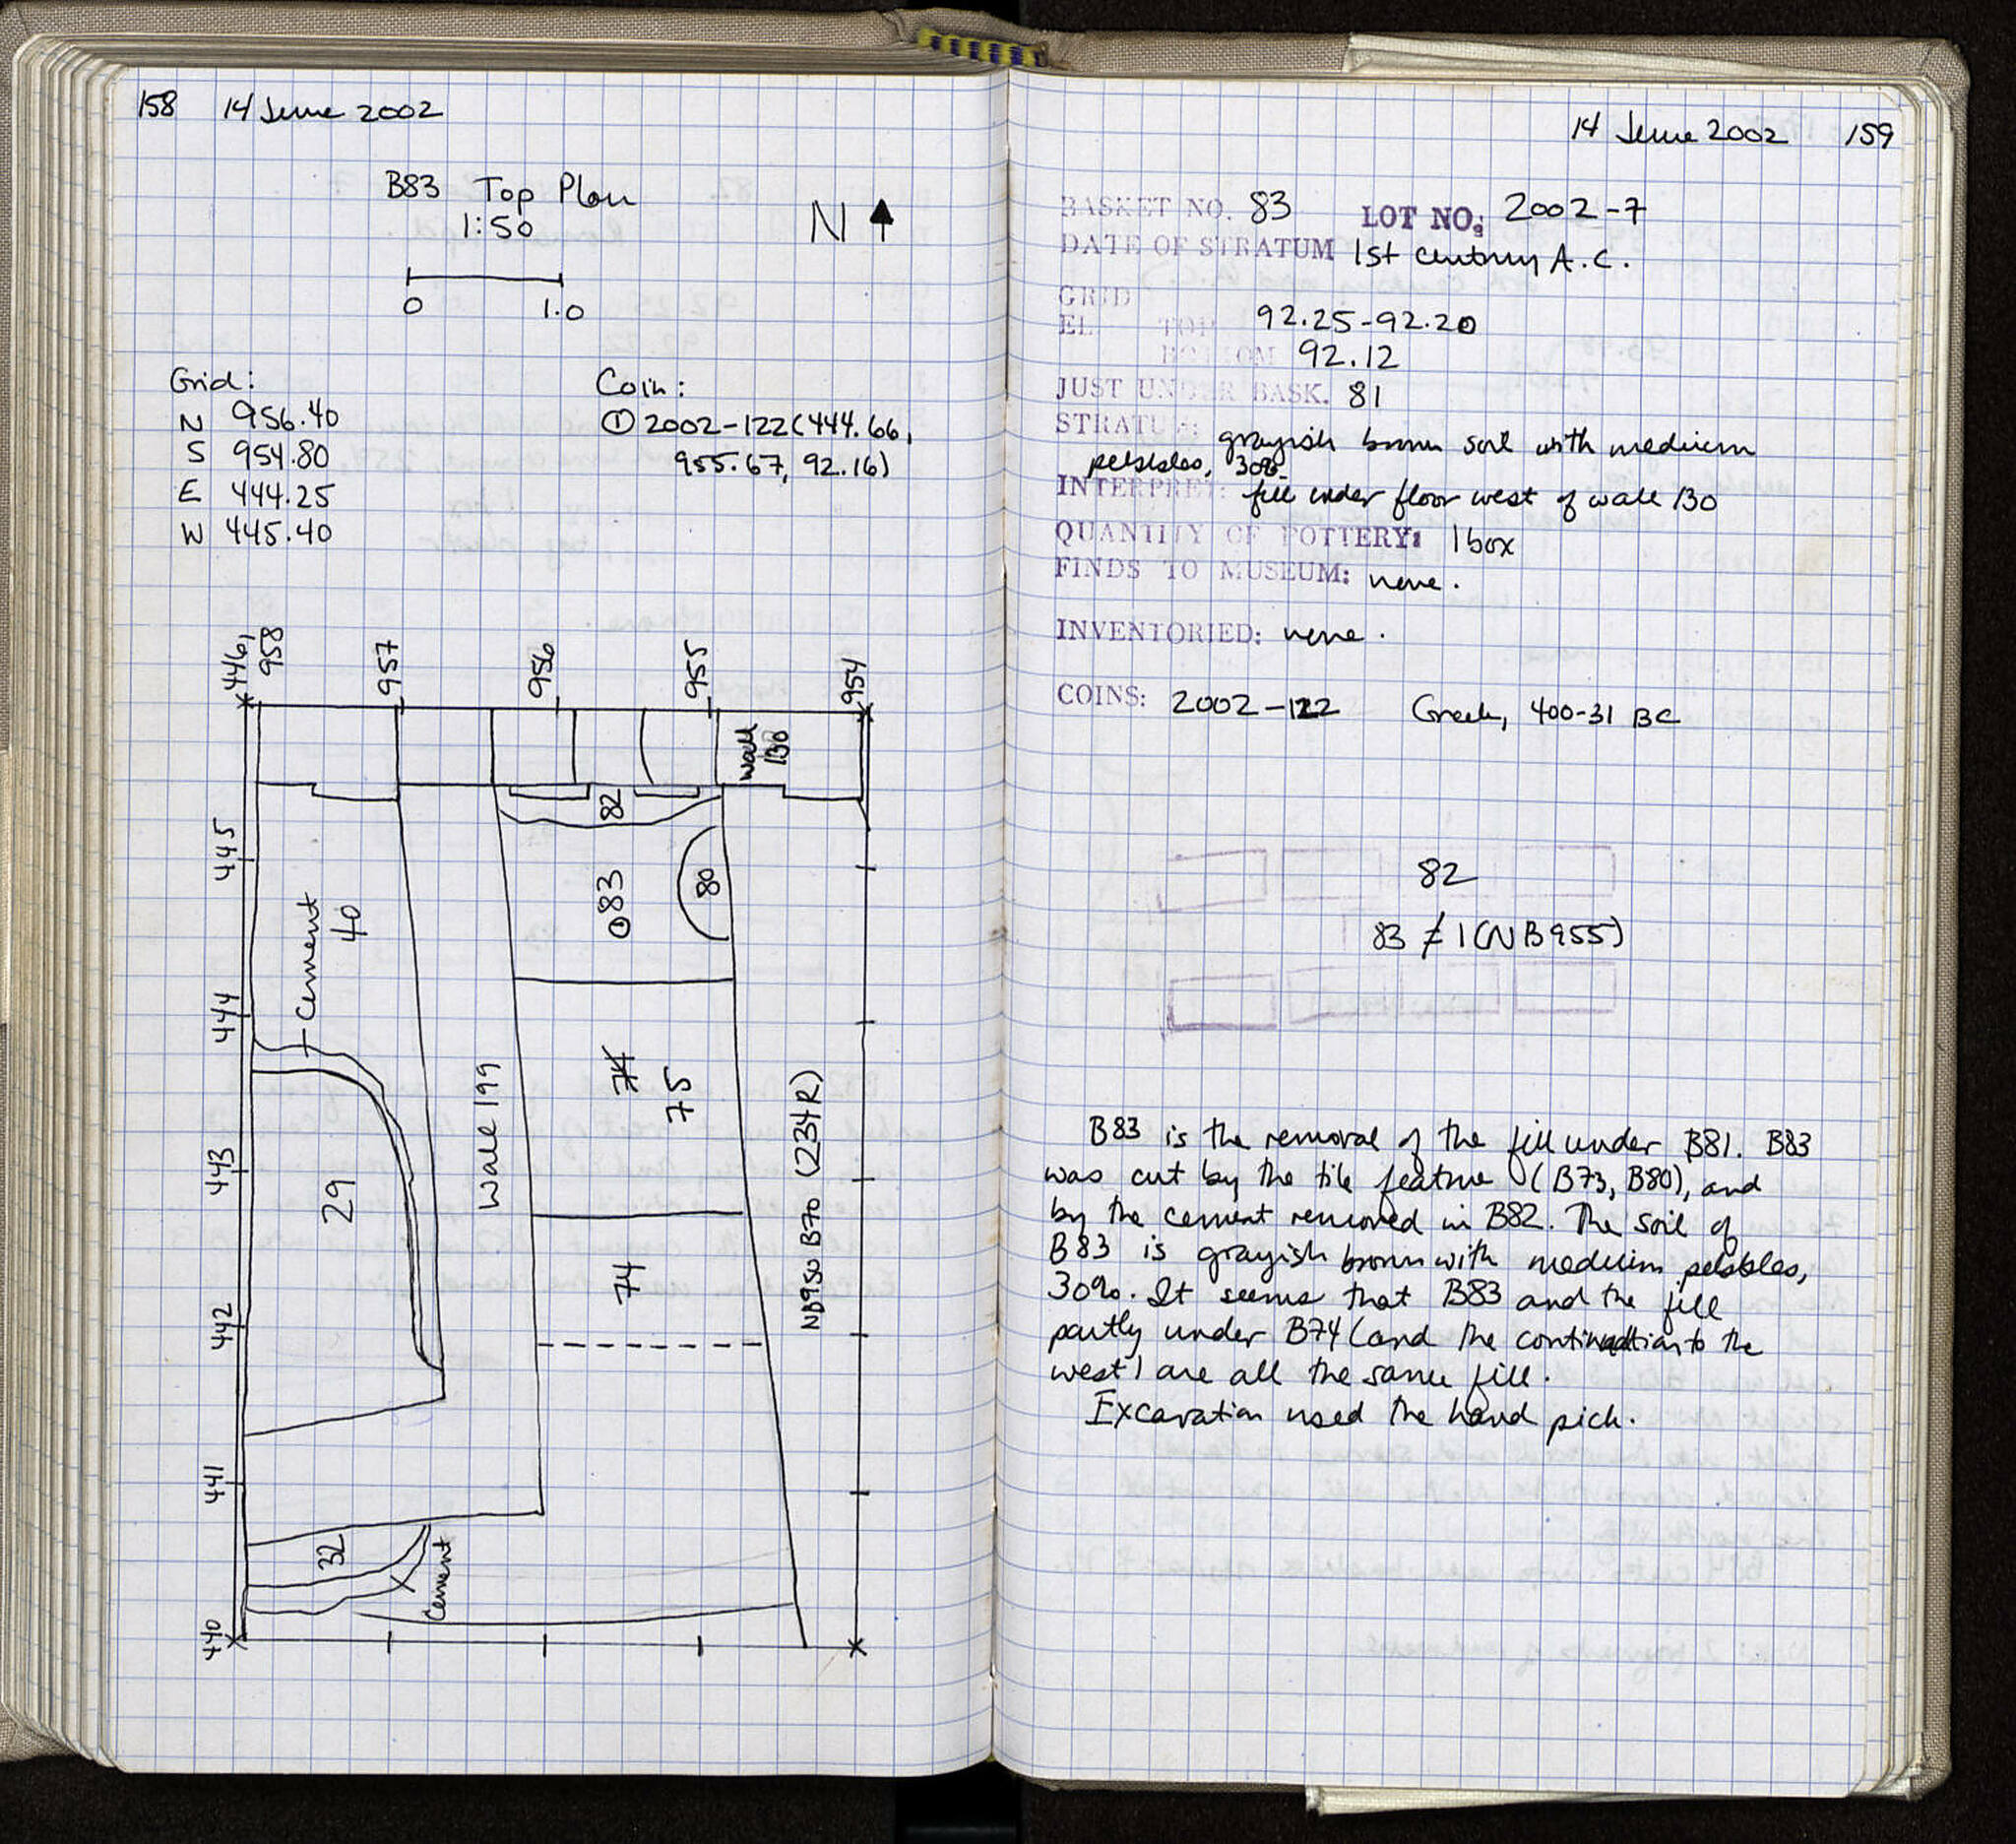 158 14 June 2002
B83 Top Plan
1:50
N
0 1.0
Grid:
N 956.40
S 954.80
E 444.25
W 445.40
Coin:
① 2002-122 (444.66,
955.67, 92.16)
446,
958
957
956
955
954
Wall
130
82
445
80
①83
Cement
40
444
74
75
Wall 199
443
29
NB950 B70 (234R)
74
442
441
32
Cement
440
14 June 2002 159
BASKET NO. 83 LOT NO: 2002-7
DATE OF STRATUM 1st century A.C.
GRID
EL TOP 92.25-92.20
BOTTOM 92.12
JUST UNDER BASK. 81
STRATUM: grayish brown soil with medium
pebbles, 30%
INTERPRET: fill under floor west of wall 130
QUANTITY OF POTTERY: 1 box
FINDS TO MUSEUM: none.
INVENTORIED: none.
COINS: 2002-122 Greek, 400-31 BC
82
83 ≠ 1 (NB955)
B83 is the removal of the fill under B81. B83
was cut by the tile feature (B73, B80), and
by the cement removed in B82. The soil of
B83 is grayish brown with medium pebbles,
30%. It seems that B83 and the fill
partly under B74 (and the continuation to the
west) are all the same fill.
Excavation used the hand pick.